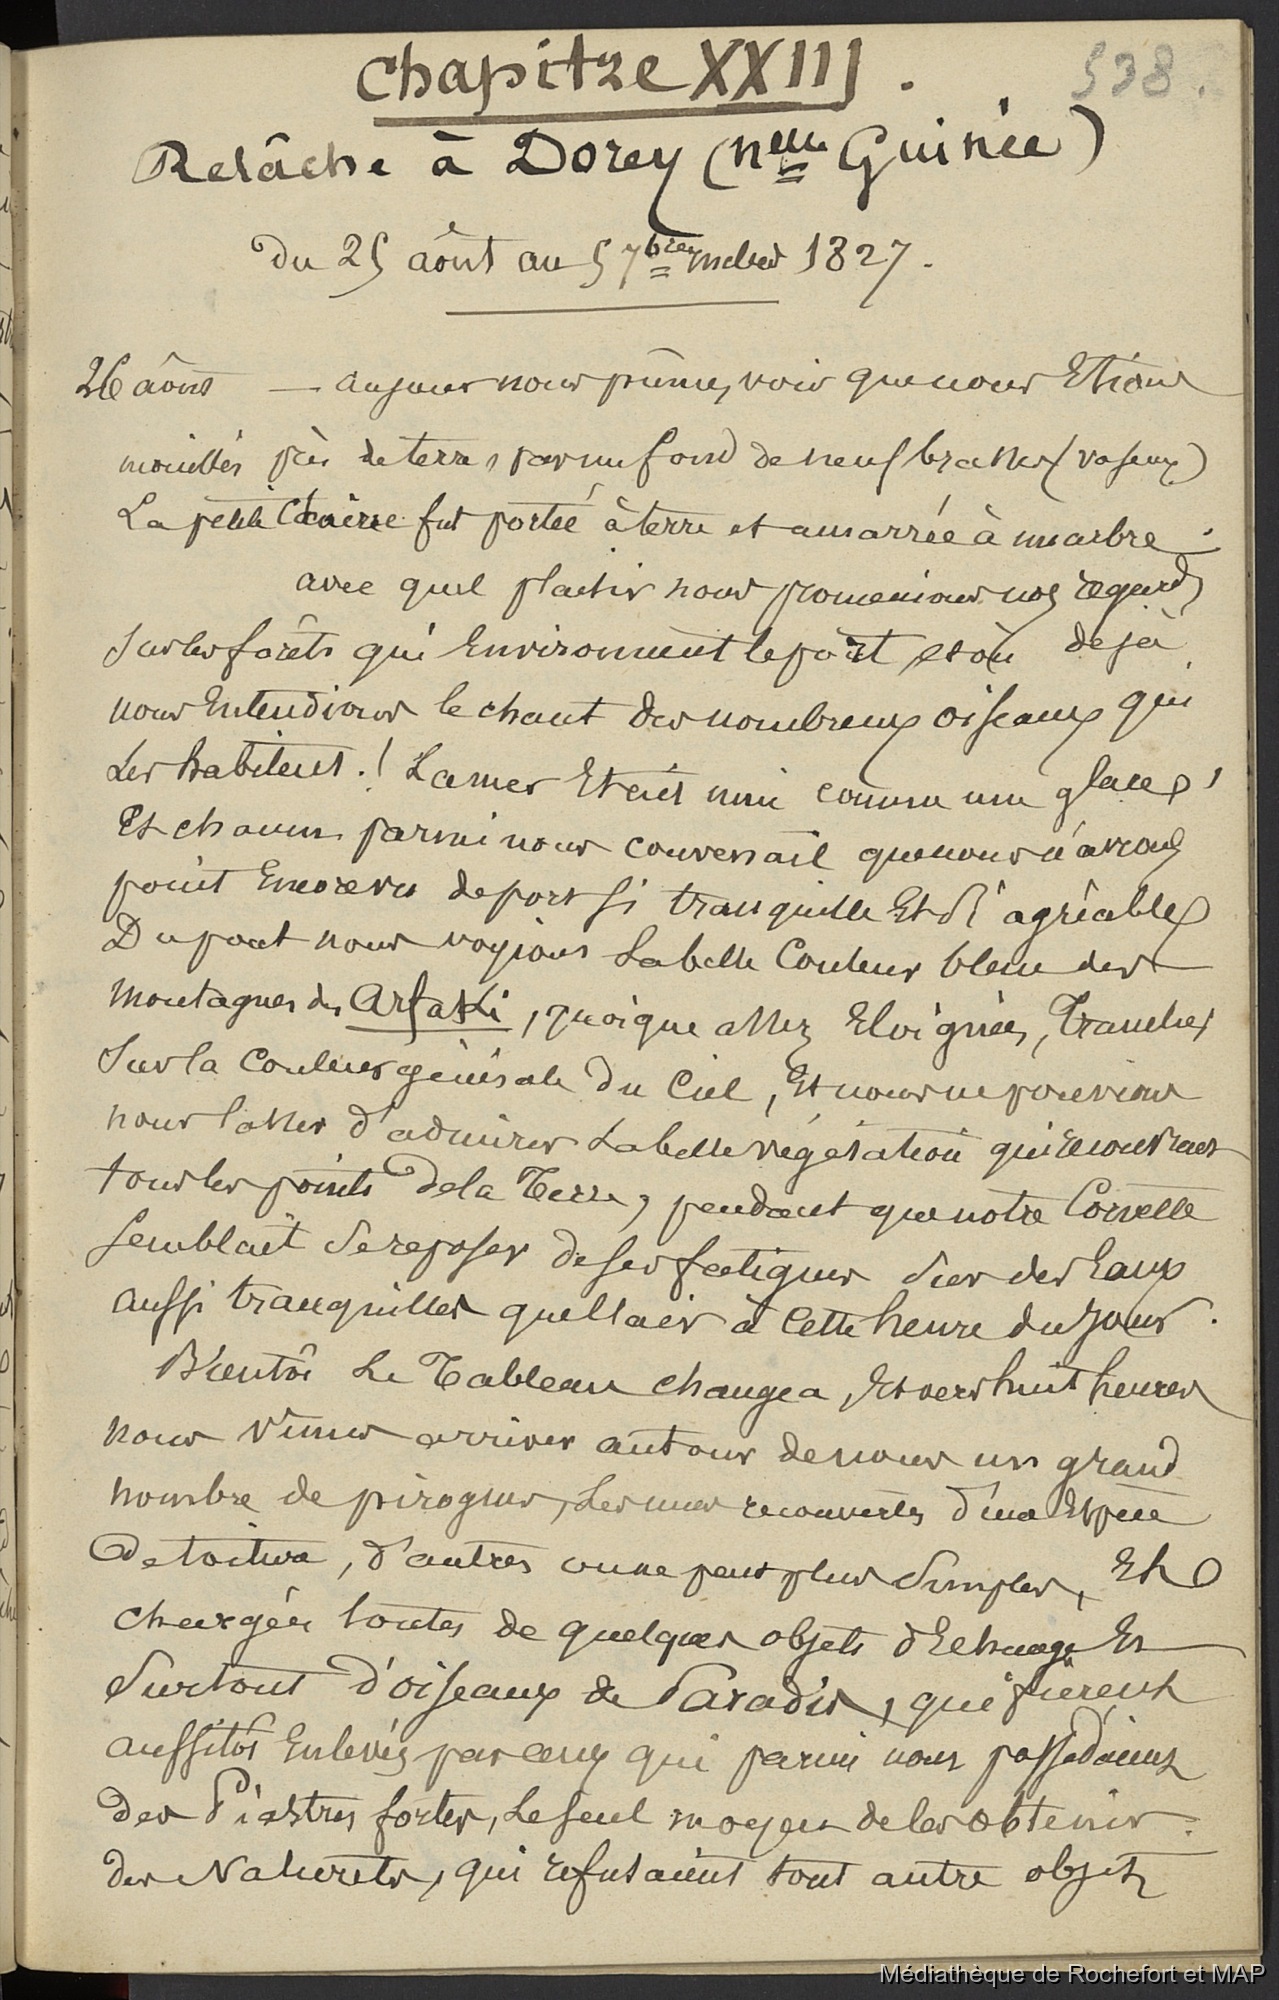 538.
Chapitre XXIII.
Relâche à Dorey (Nelle Guinée)
Du 25 août au 5 7bre 1827.
26 août — au jour nous pûmes voir que nous Etions
mouillés près de terre, par un fond de neuf brasses (vaseux)
La petite Chaîne fut portée à terre et amarrée à un arbre.
avec quel plaisir nous promenions nos regards
sur les forêts qui Environnent le port, et où déjà
nous Entendions le chant des nombreux oiseaux qui
Les habitent.! La mer Etait unie comme une glace,
Et chacun parmi nous convenait que nous n'avions
point Encore vu de port si tranquille Et si agréable
Du pont nous voyions La belle Couleur bleue des
Montagnes des Arfaki, quoique assez Eloignées, Trancher
Sur la Couleur générale Du Ciel, Et nous ne pouvions
nous lasser d'admirer La belle végétation qui recouvrait
tous les points de la Terre, pendant que notre Corvette
Semblait Se reposer de ses fatigues Sur des Eaux
aussi tranquilles que l'air à Cette heure du jour.
Bientôt Le Tableau changea, Et vers huit heures
nous vîmes arriver autour de nous un grand
nombre de pirogues, Les unes recouvertes d'une Espèce
De toiture, d'autres un peu plus Simples, Et
chargées toutes de quelques objets d'Echange Et
Surtout d'oiseaux de Paradis, qui furent
aussitôt Enlevés par ceux qui parmi nous possédaient
des Piastres fortes, Le seul moyen de les obtenir
des Naturels, qui refusaient tout autre objet
Médiathèque de Rochefort et MAP